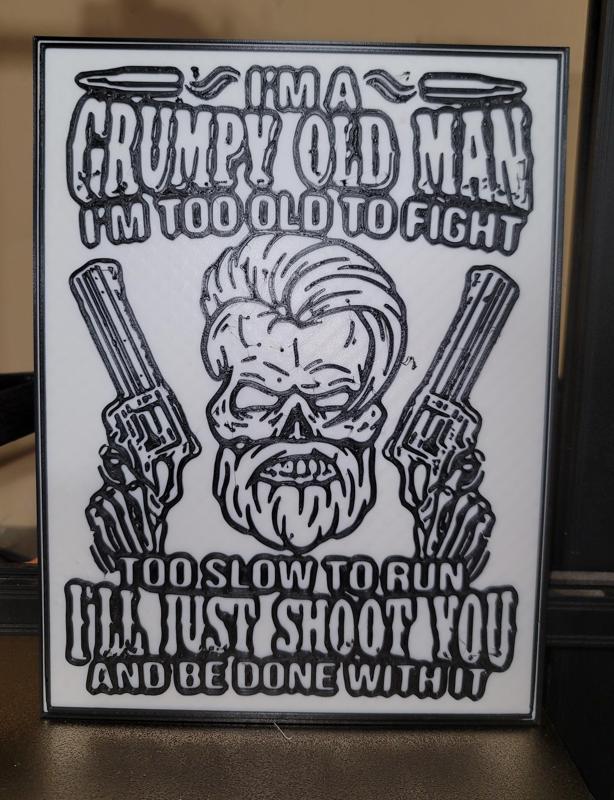 I'M A
GRUMPY OLD MAN
I'M TOO OLD TO FIGHT
TOO SLOW TO RUN
I'LL JUST SHOOT YOU
AND BE DONE WITH IT